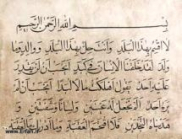 بِسْمِ اللَّهِ الرَّحْمَٰنِ الرَّحِيمِ
لَا أُقْسِمُ بِهَذَا الْبَلَدِ وَأَنْتَ حِلٌّ بِهَذَا الْبَلَدِ وَوَالِدٍ وَمَا
وَلَدَ لَقَدْ خَلَقْنَا الْإِنْسَانَ فِي كَبَدٍ أَيَحْسَبُ أَنْ لَنْ يَقْدِرَ
عَلَيْهِ أَحَدٌ يَقُولُ أَهْلَكْتُ مَالًا لُبَدًا أَيَحْسَبُ أَنْ لَمْ
يَرَهُ أَحَدٌ أَلَمْ نَجْعَلْ لَهُ عَيْنَيْنِ وَلِسَانًا وَشَفَتَيْنِ وَ
هَدَيْنَاهُ النَّجْدَيْنِ فَلَا اقْتَحَمَ الْعَقَبَةَ وَمَا